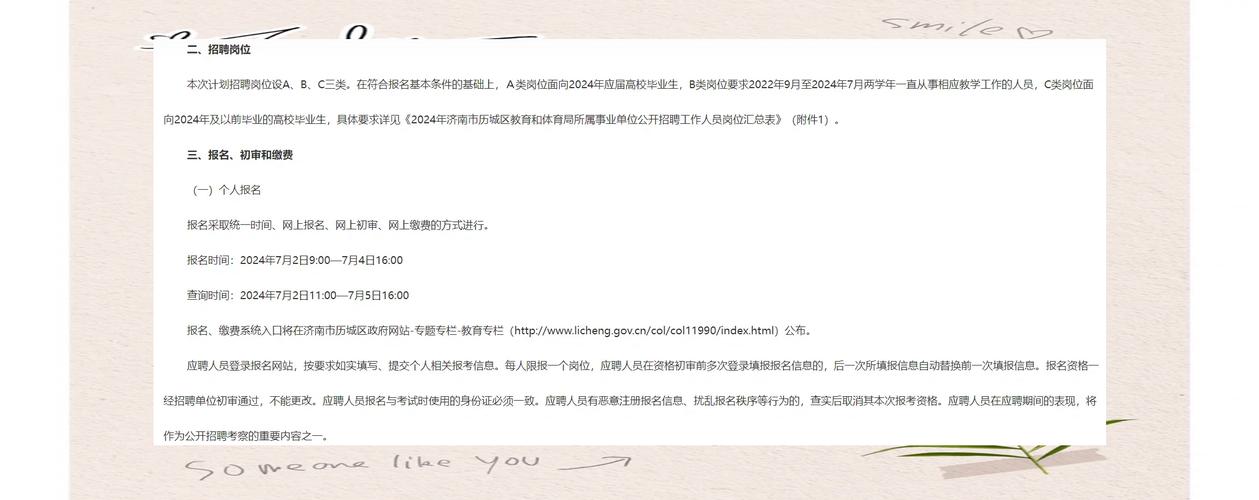 smile
二、招聘岗位
本次计划招聘岗位设A、B、C三类。在符合报名基本条件的基础上，A类岗位面向2024年应届高校毕业生，B类岗位要求2022年9月至2024年7月两学年一直从事相应教学工作的人员，C类岗位面
向2024年及以前毕业的高校毕业生，具体要求详见《2024年济南市历城区教育和体育局所属事业单位公开招聘工作人员岗位汇总表》（附件1）。
三、报名、初审和缴费
（一）个人报名
报名采取统一时间、网上报名、网上初审、网上缴费的方式进行。
报名时间：2024年7月2日9:00—7月4日16:00
查询时间：2024年7月2日11:00—7月5日16:00
报名、缴费系统入口将在济南市历城区政府网站-专题专栏-教育专栏（http://www.licheng.gov.cn/col/col11990/index.html）公布。
应聘人员登录报名网站，按要求如实填写、提交个人相关报考信息。每人限报一个岗位，应聘人员在资格初审前多次登录填报报名信息的，后一次所填报信息自动替换前一次填报信息。报名资格一
经招聘单位初审通过，不能更改。应聘人员报名与考试时使用的身份证必须一致。应聘人员有恶意注册报名信息、扰乱报名秩序等行为的，查实后取消其本次报考资格。应聘人员在应聘期间的表现，将
作为公开招聘考察的重要内容之一。
someone like you